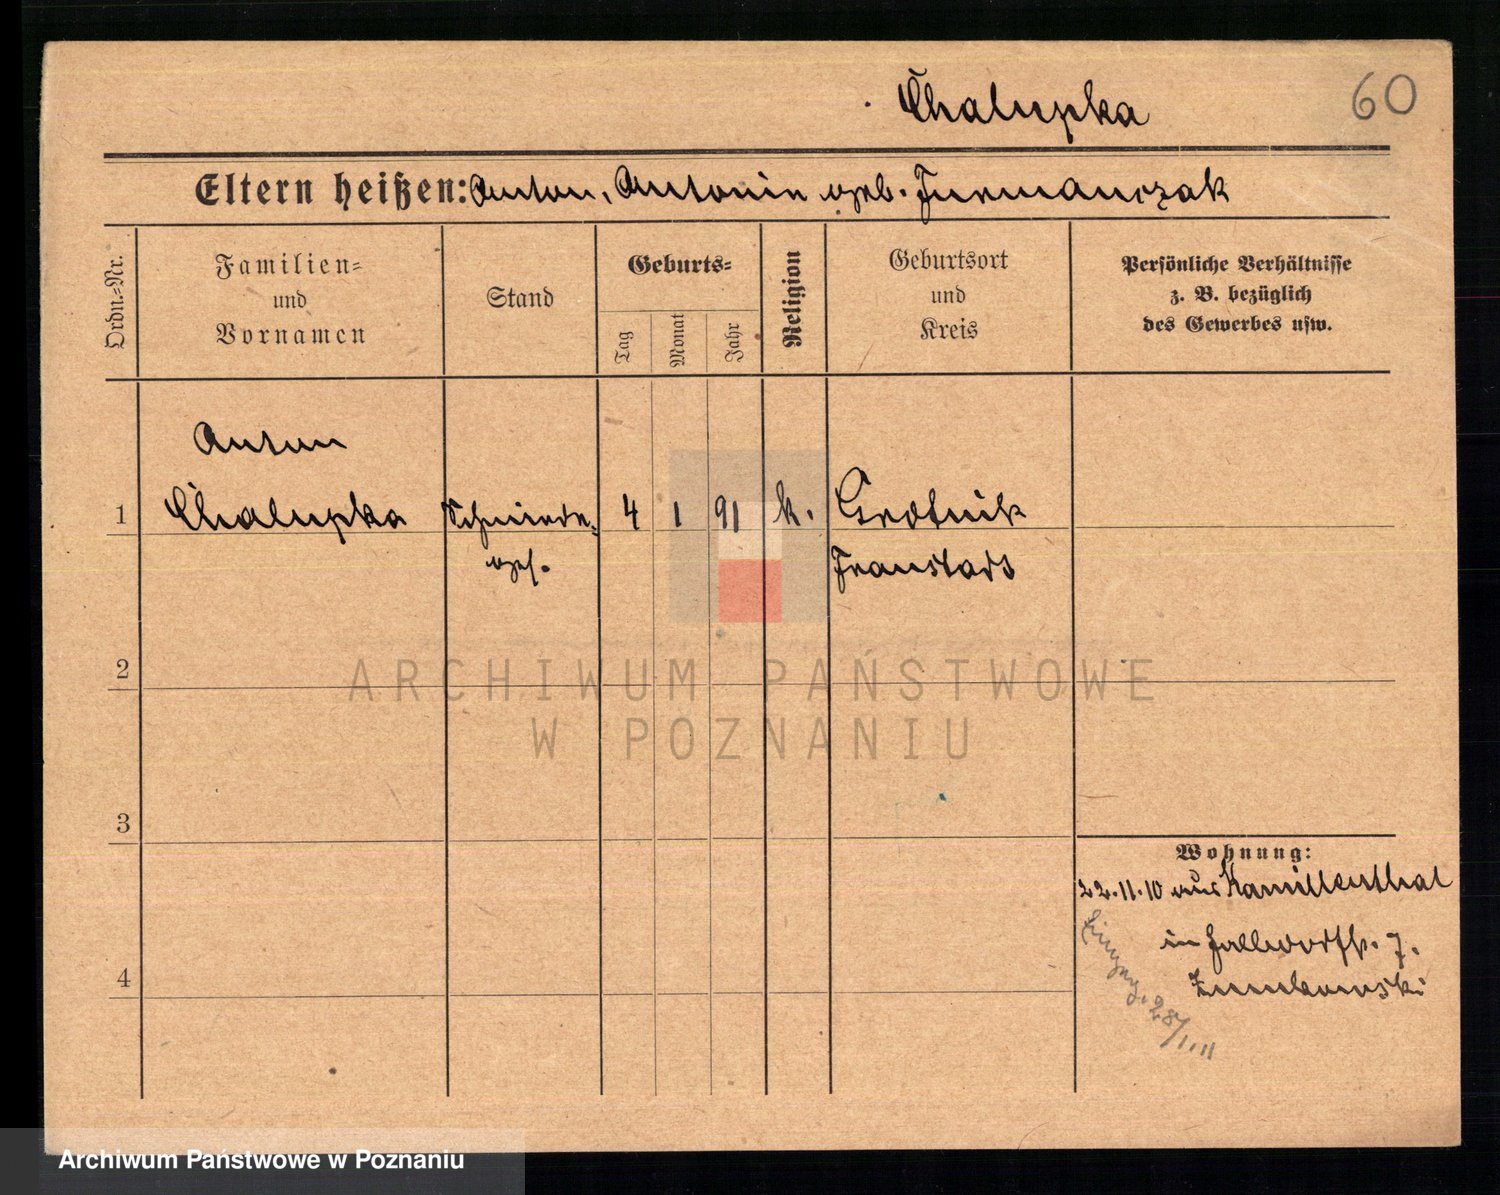 Chalupka
60
Eltern heißen: Anton, Antonie geb. Furmanczak
Ordn.-Nr.
Familien-
und
Vornamen
Stand
Geburts-
Tag
Monat
Jahr
Religion
Geburtsort
und
Kreis
Persönliche Verhältnisse
z. B. bezüglich
des Gewerbes usw.
Anton
1 Chalupka Schmiede- 4 1 91 k. Grotnik
ges. Fraustadt
2
ARCHIWUM PAŃSTWOWE
W POZNANIU
3
Wohnung:
22.11.10 aus Kamillenthal
in 7.
4
28/1.11
Archiwum Państwowe w Poznaniu